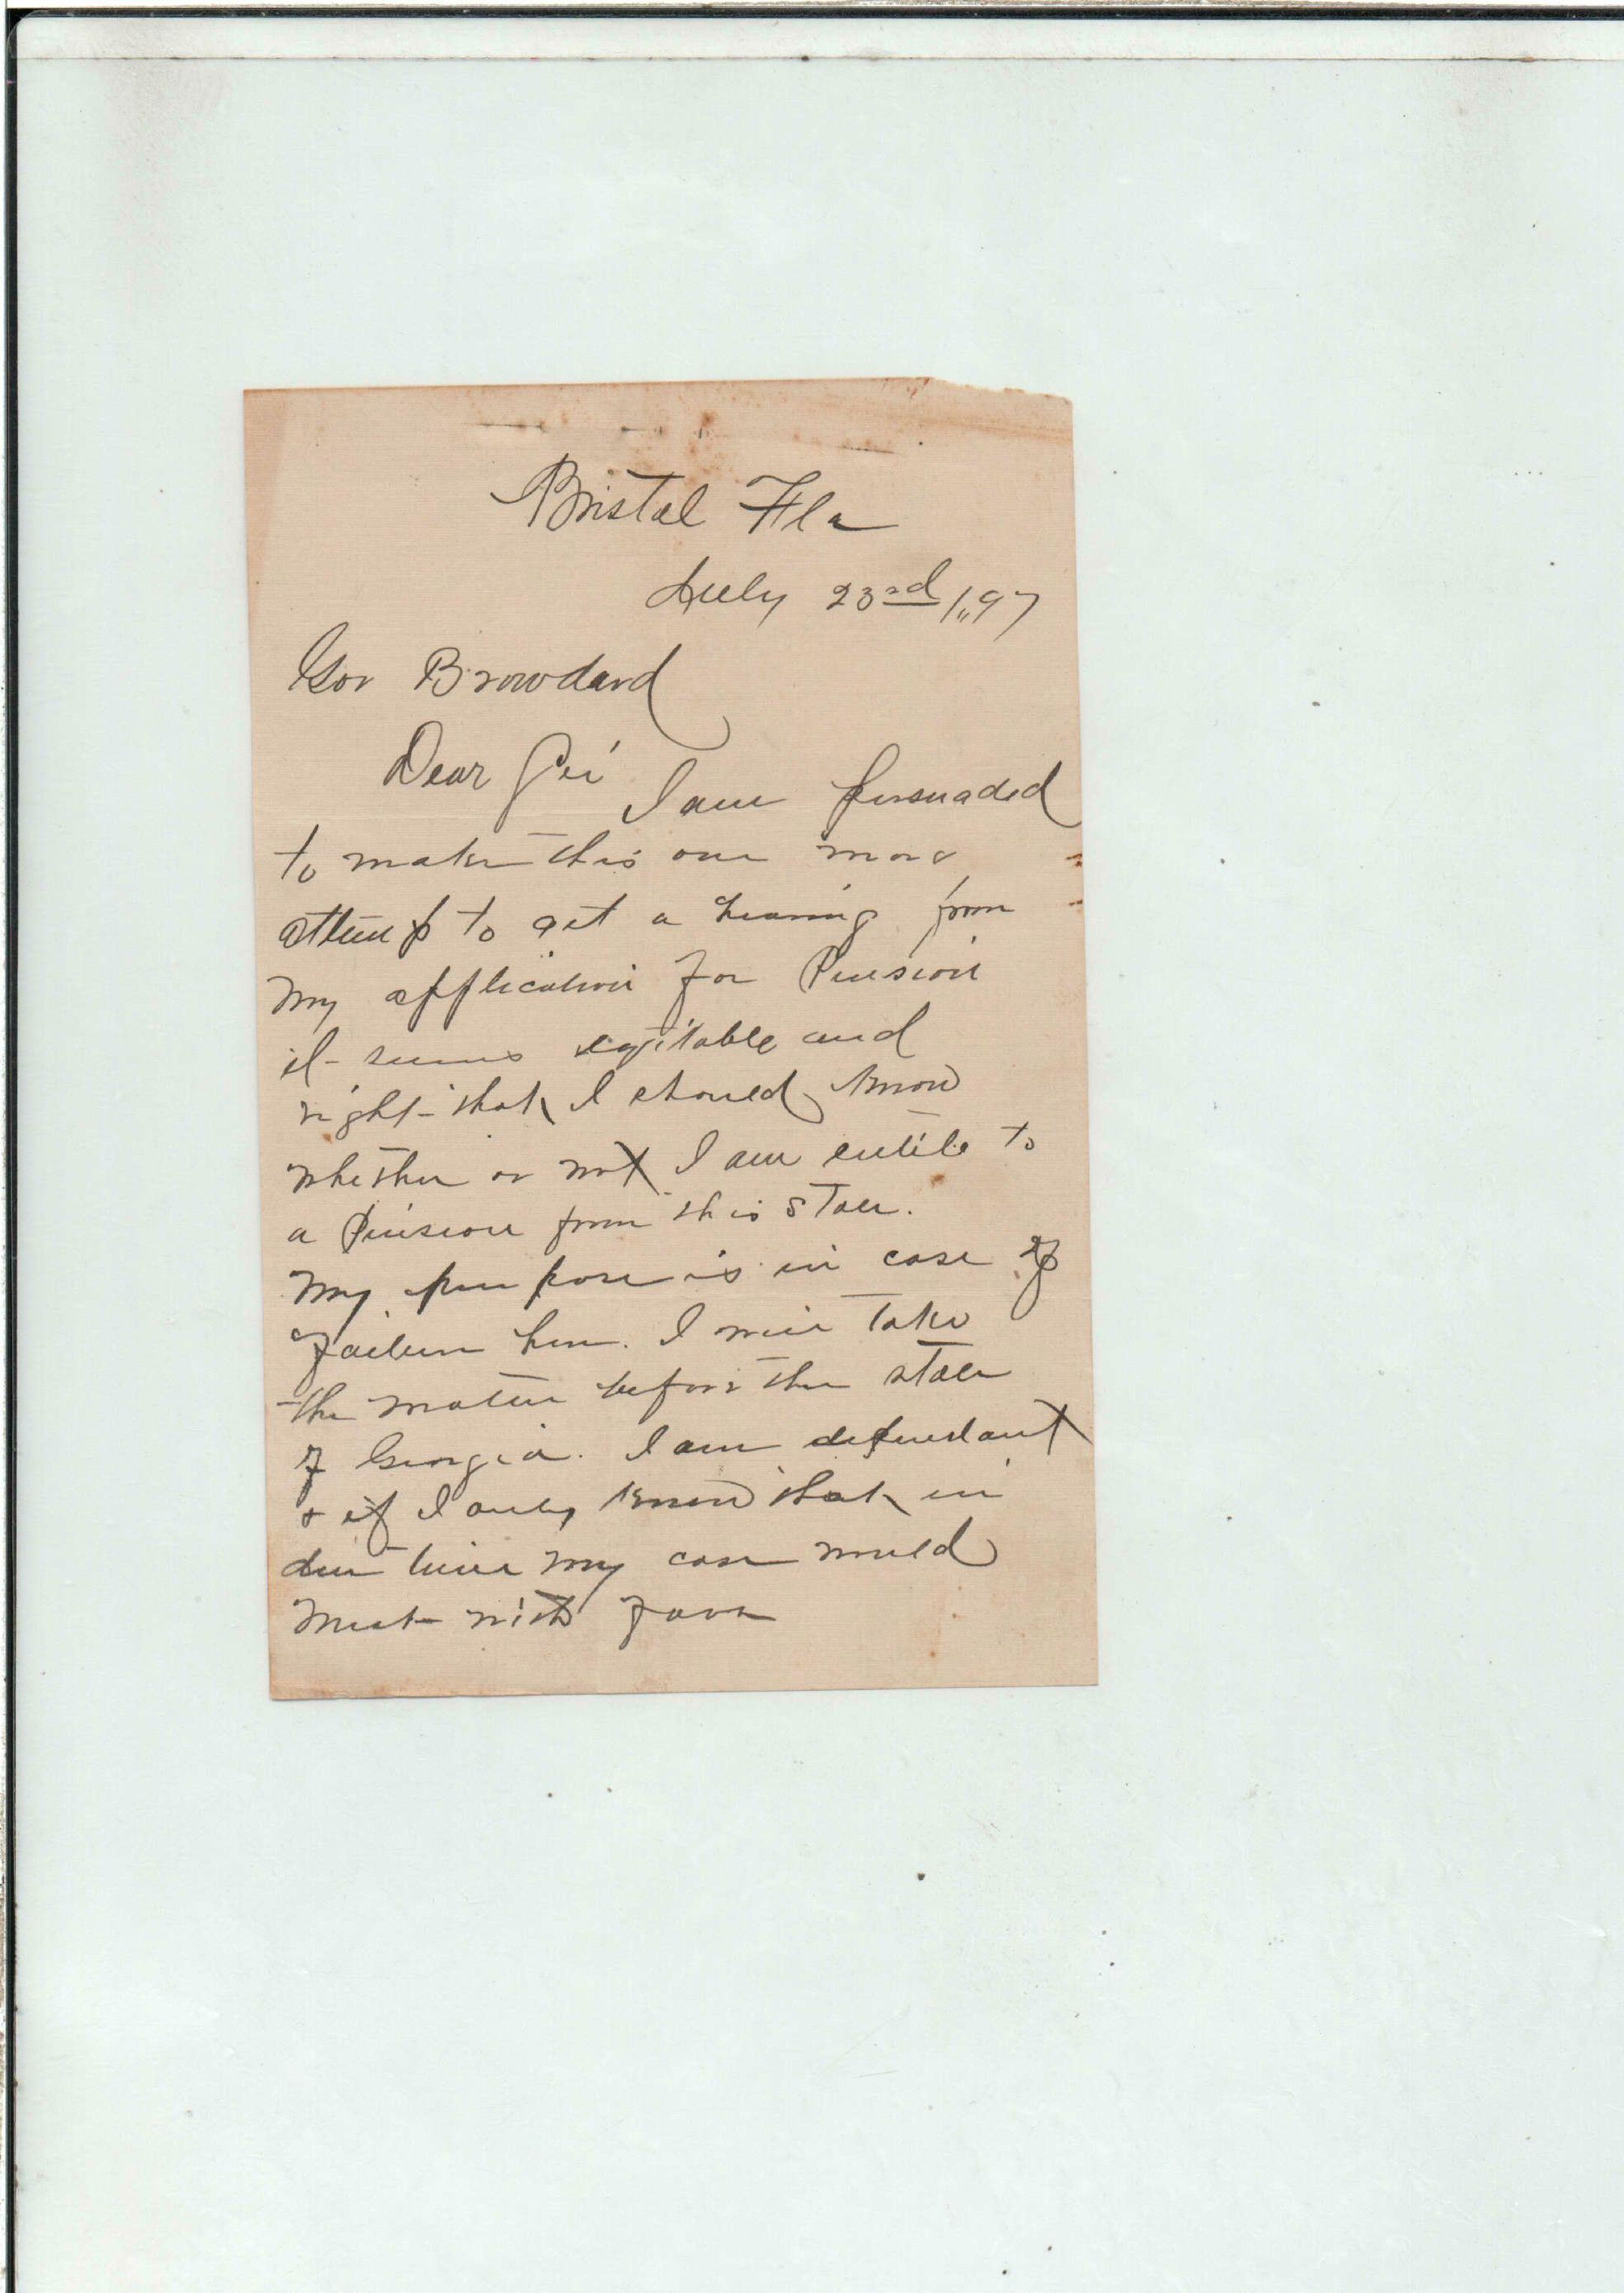 Bristol Fla
July 23rd 1"97
Gov Browdard
Dear Sir
I am persuaded
to make this one more
attemp to get a hearing from
my application for Pension
it seems eqitable and
right that I should know
whether or not I am entitle to
a Pension from this State.
My purpose is in case of
failure here. I will take
the matter before the State
of Georgia. I am dependant
& if I only knew that in
due time my case would
meet with favor